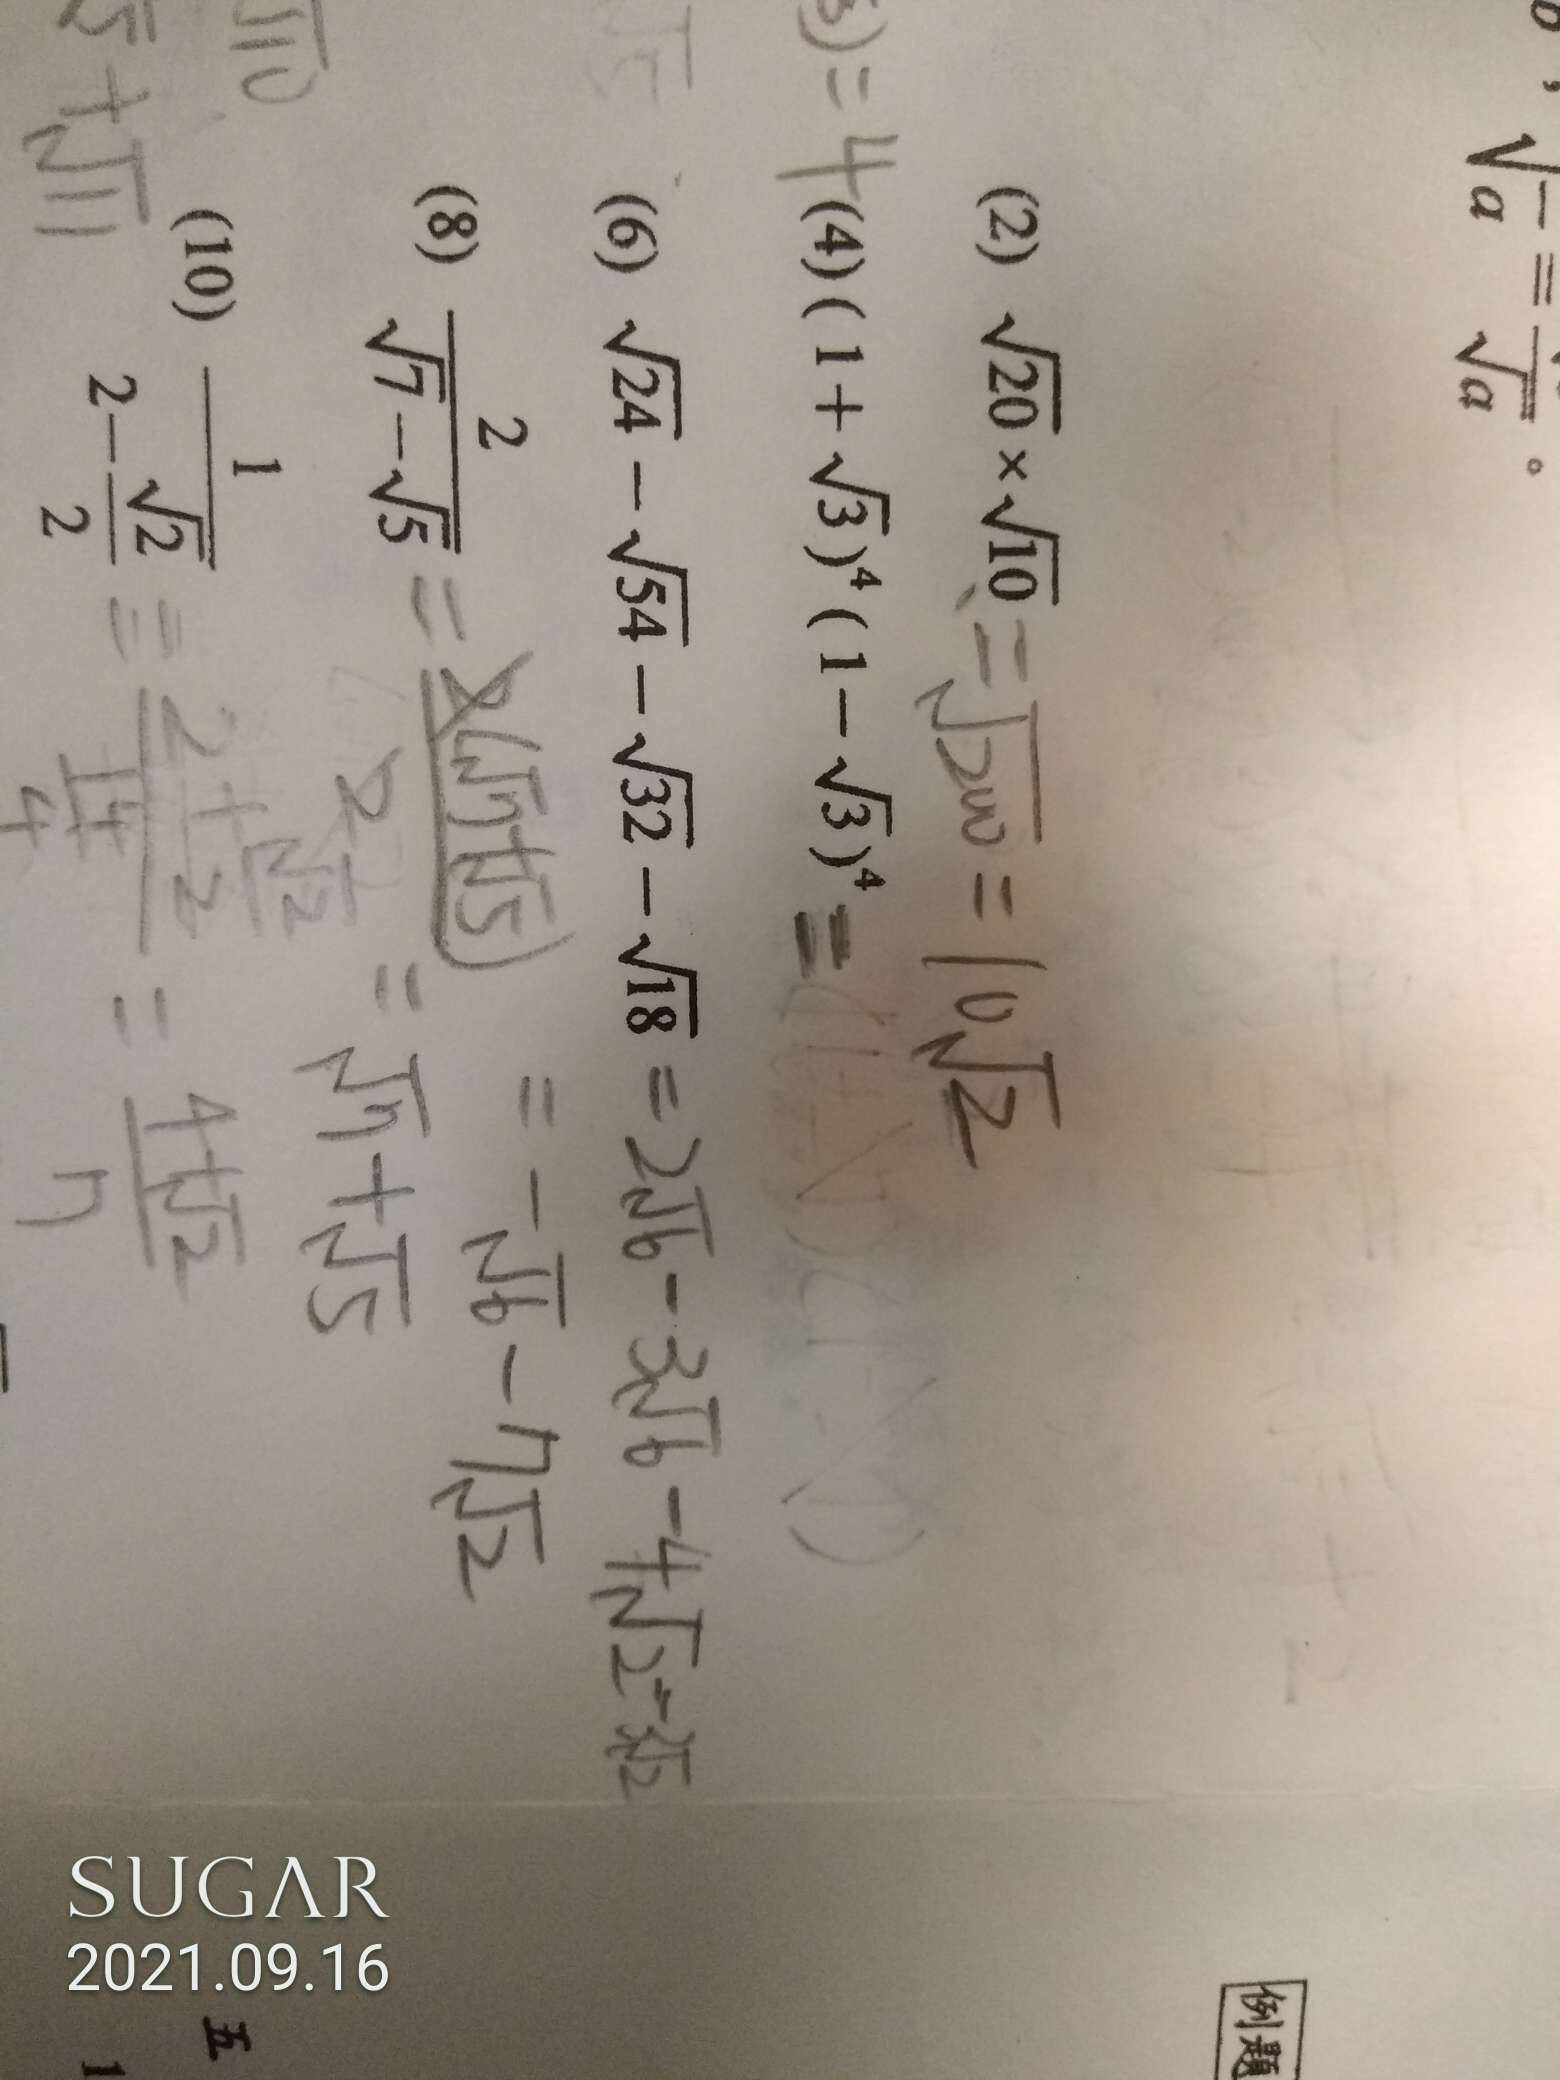 √a = √a 。
(2) √20 × √10 = √200 = 10√2
3) = 4 (4) (1+√3)⁴(1−√3)⁴ =
(6) √24 − √54 − √32 − √18 = 2√6 − 3√6 − 4√2 − 3√2
= −√6 − 7√2
(8) 2/(√7−√5) = 2(√7+√5)/2 = √7+√5
√10
(10) 1/(2−√2/2) = (2+√2/2)/(14/4) = (4+√2)/7
5+√11
例題
五
1
SUGAR
2021.09.16